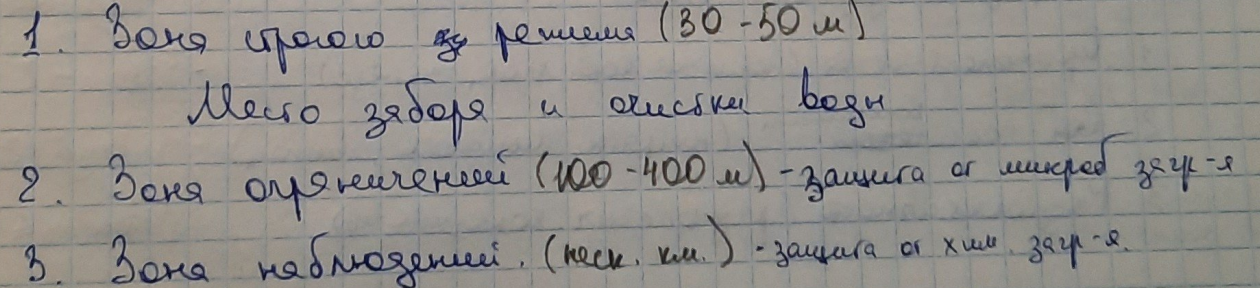 1. Зона строгого режима (30-50 м)
Место забора и очистки воды
2. Зона ограничений (100-400 м) - защита от микроб загр-я
3. Зона наблюдений. (неск. км.) - защита от хим. загр-я.